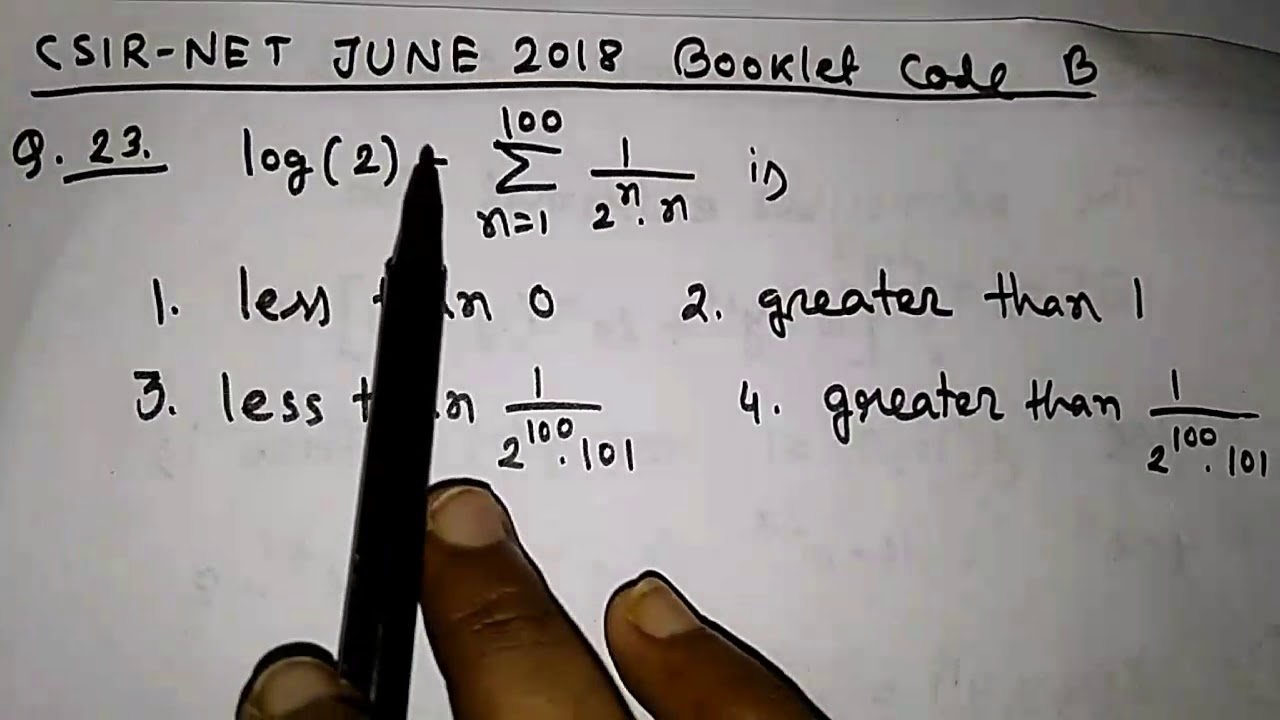 CSIR-NET JUNE 2018 Booklet Code B
Q. 23. log(2) - \sum_{n=1}^{100} \frac{1}{2^n . n} is
1. less than 0 2. greater than 1
3. less than \frac{1}{2^{100} . 101} 4. greater than \frac{1}{2^{100} . 101}